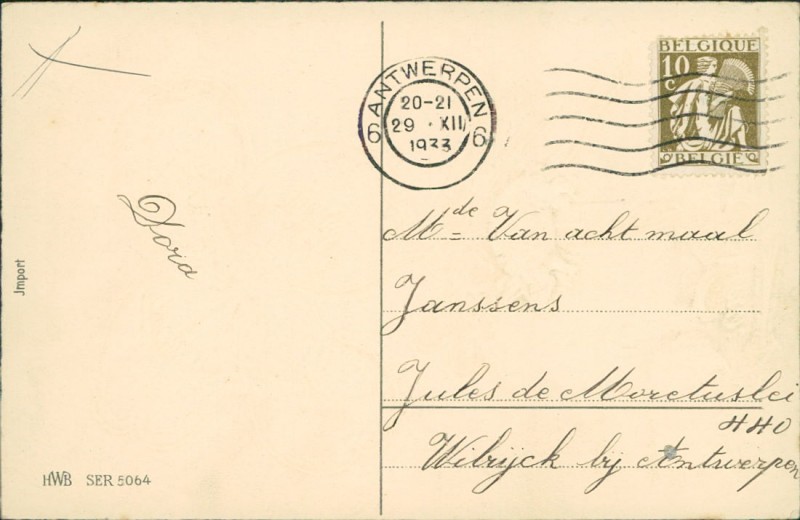 BELGIQUE
10 c
BELGIE
ANTWERPEN
6 6
20-21
29 XII
1933
Dora
Mde Van acht maal
Janssens
Jules de Moretuslei
440
Wilrijck bij Antwerpen
Jmport
HWB SER 5064